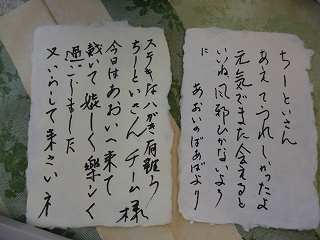 ちーといさん
あえてうれしかったよ
元気でまた会えると
いいね 風邪ひかないよう
に
あおいのばあばより
ステキなハガキ有難う
ちーといさん チーム様
今日はあおいへ来て
戴いて嬉しく楽しく
過ごしました
又いらして来さいネ